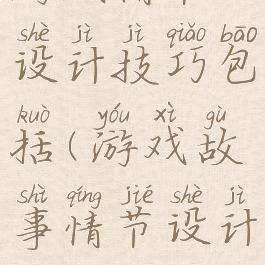 shè jì jì qiǎo bāo
设计技巧包
kuò yóu xì gù
括(游戏故
shì qíng jié shè jì
事情节设计